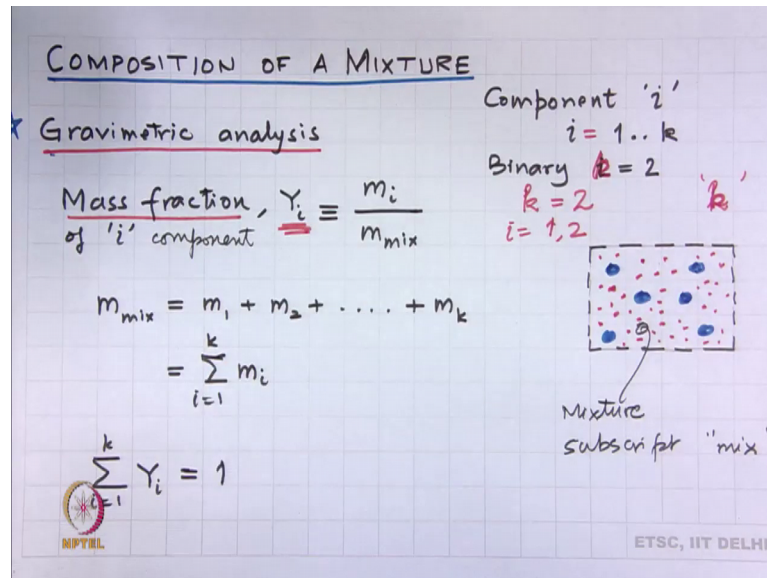 COMPOSITION OF A MIXTURE
Gravimetric analysis
Mass fraction, Yᵢ ≡ mᵢ / m_mix
of 'i' component
m_mix = m₁ + m₂ + ..... + m_k
= Σ_{i=1}^{k} mᵢ
Σ_{i=1}^{k} Yᵢ = 1
Component 'i'
i = 1.. k
Binary k = 2
k = 2
i = 1,2
'k'
Mixture
subscript "mix"
NPTEL
ETSC, IIT DELHI